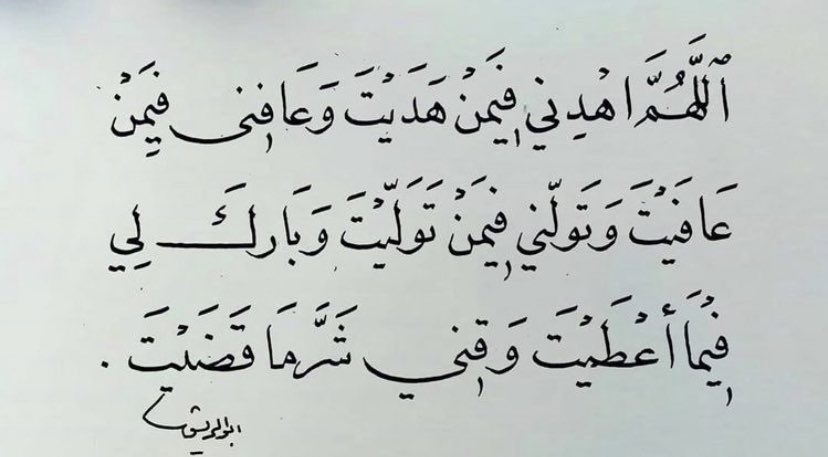 ٱللَّهُمَّ اهْدِني فِيمَنْ هَدَيْتَ وَعَافِنى فِيمَنْ
عَافَيْتَ وَتَوَلَّني فِيمَنْ تَوَلَّيْتَ وَبَارِكَ لِي
فِيْمَا أَعْطَيْتَ وَقِني شَرَّ مَا قَضَيْتَ .